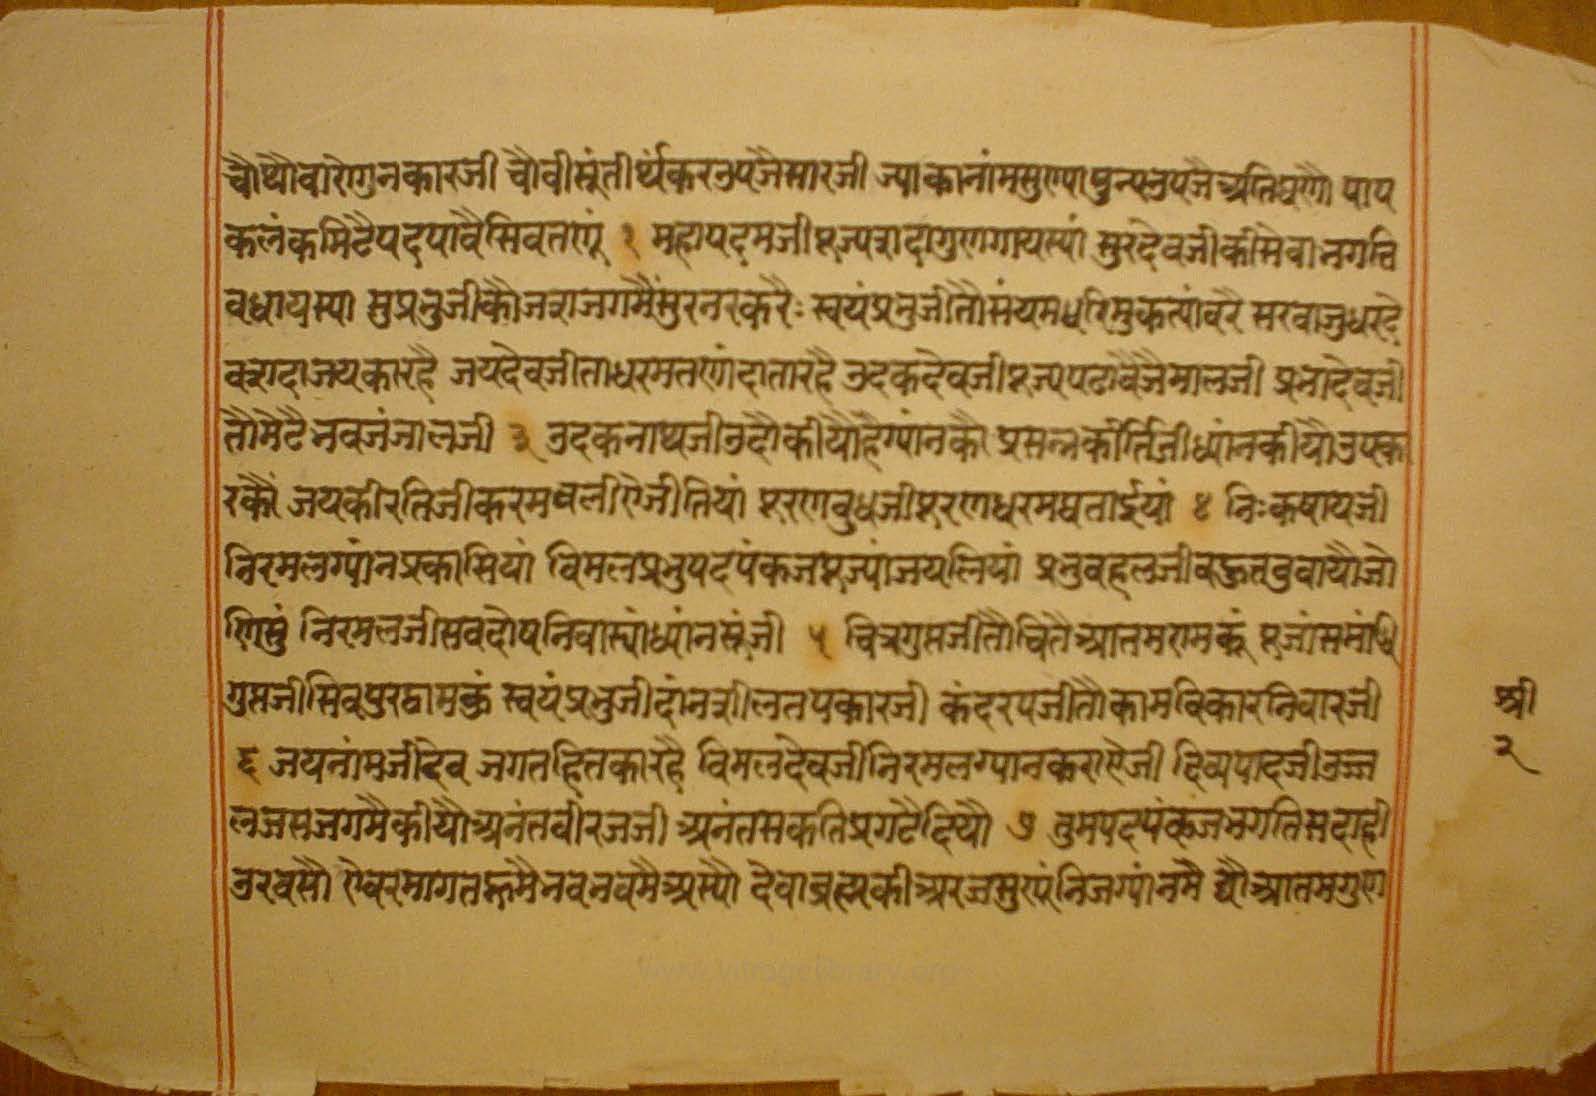 चौथौवारोगुनकारजी चौवीसुंतीर्थंकरउपजैसारजी ज्याकानांमसुण्यापुन्यउपजैअतिघणौ पाप
कलंकमिटैपदपावैसिवतणूं १ महापदमजीपूज्यसदागुणगायस्यां सुरदेवजीकीसेवानगति
वधायस्या सुप्रभुजीकौजसजगमैंसुरनरकरैः स्वयंप्रभुजीतौसंयमधरिमुकत्यांवरै सरवानुधरदे
वसदाजयकारहै जयदेवजीताधरमतणांदातारहै उदकदेवजीपूज्यपढावैजैमालजी प्रभादेवजी
तौमेटैभवजंजालजी ३ उदकनाथजीउदौकीयौहैग्यांनकौ प्रसन्नकीर्तिजीध्यांनकीयौउपका
रकौं जयकीरतिजीकरमवलीणैजीतियां पूरणवुधजीपूरणधरमवताईयां ४ निःकषायजी
निरमलग्यांनप्रकासियां विमलप्रभुपदपंकजपूज्यांजयलियां प्रभुवहलजीवहुतवुवायौजो
णिसुं निरमलजीसवदोषनिवास्यांध्यांनसूंजी ५ चित्रगुप्तजीतौचितैआतमरामकूं पूजांसमांधि
गुप्तजीसिवपुरवामकुं स्वयंप्रभुजीदांनशीलतपकारजी कंदरपजीतौकामविकारनिवारजी
६ जयनांमजीदेव जगतहितकारहै विमलदेवजीनिरमलग्यानकरासैजी दिव्यपादजीउज्ज
लजसजगमैकीयौअनंतवीरजजी अनंतसकतिप्रगटैदियौ ७ तुमपदपंकजभगतिसदाही
उरवसौ एवरमागतहुमैभवभवमैअस्यौ देवाव्रह्मकीअरजसुण्यंनिजग्यांनमै द्यौआतमगुण
श्री
२
www.vitragelibrary.org